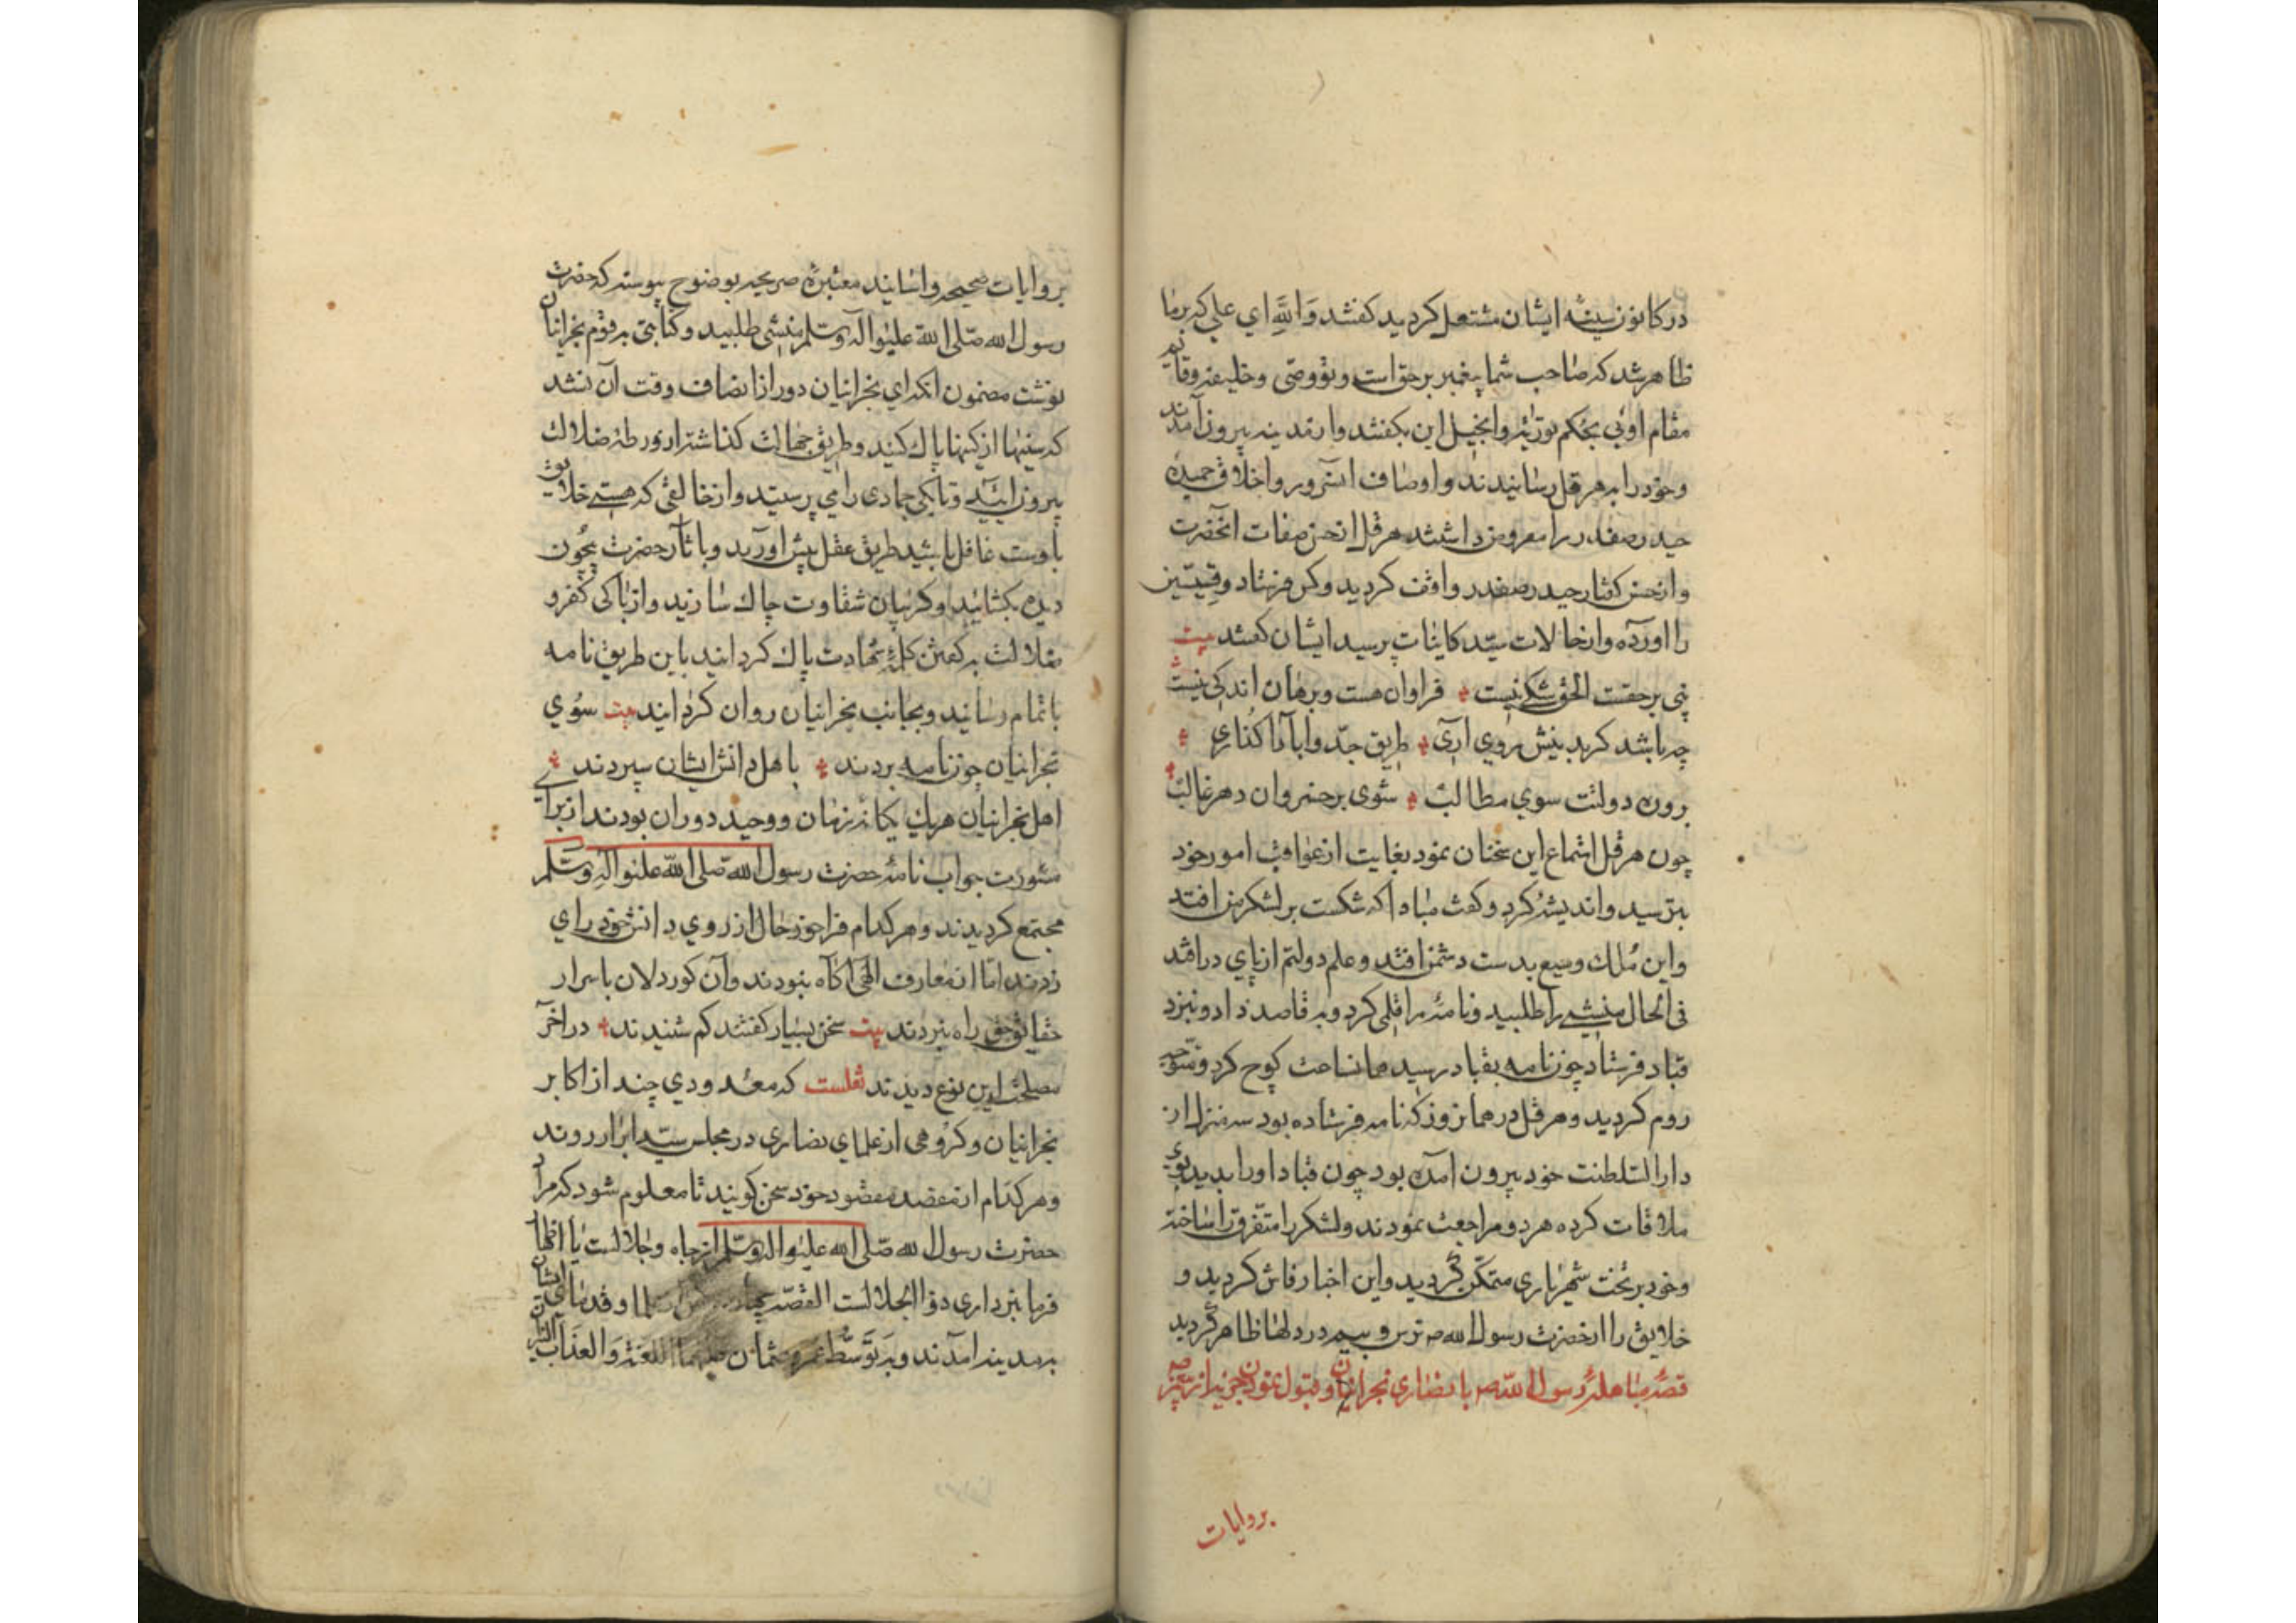 در کانون سینه ایشان مشتعل کردید کفتند والله ای علی که برما
ظاهر شد که صاحب شما پیغمبر برحق است و تو وصی و خلیفه و قایم
مقام اویی بحکم توریة و انجیل این بکفتند و از مدینه بیرون آمدند
و خود را به هرقل رسانیدند و اوصاف آنسرور و اخلاق حمیده
حیدر صفدر را معروض داشتند هرقل از حسن صفات آنحضرت
و از حسن کفتار حیدر صفدر واقف کردید و کس فرستاد و قسیسین
را آورده و از حالات سید کاینات پرسید ایشان کفتند بیت
نبی برحقست الحق شکی نیست فراوان هست و برهان اندکی نیست
چه باشد کر به بینش روی آری طریق جد و آبا را کذاری
برون دولتت سوی مطالب شوی بر خسروان دهر غالب
چون هرقل استماع این سخنان نمود بغایت از عواقب امور خود
بترسید و اندیشه کرد و کفت مبادا که شکست بر لشکر من افتد
و این ملک وسیع بدست دشمن افتد و علم دولتم از پای درافتد
فی الحال منشی را طلبید و نامه را قلمی کرد و به قاصد داد و بنزد
قباد فرستاد چون نامه بقباد رسید همانساعت کوچ کرد و متوجه
روم کردید و هرقل در همان روز که نامه فرستاده بود سه منزل از
دار السلطنت خود بیرون آمده بود چون قباد او را بدید
ملاقات کرده هر دو مراجعت نمودند و لشکر را متفرق ساخته
و خود بر تخت شهریاری متمکن کردید و این اخبار فاش کردید و
خلایق را از حضرت رسول الله ص ترس و بیم در دلها ظاهر کردید
قصه مباهله رسول الله ص با نصاری نجرانیان و قبول نمودن جزیه
بروایات
بروایات صحیحه و اسانید معتبره صریحه بوضوح پیوسته که حضرت
رسول الله صلی الله علیه و آله وسلم منشی طلبید و کتابتی به قوم نجرانیان
نوشت مضمون آنکه ای نجرانیان دور از انصاف وقت آن نشد
که سینها از کینها پاک کنید و طریق جهالت کذاشته از ورطه ضلالت
بیرون آیید و تا کی جمادی را می پرستید و از خالقی که هستی خلایق
باوست غافل باشید طریق عقل پیش آورید و باثار حضرت بیچون
دیده بکشایید و کریبان شقاوت چاک سازید و از ناپاکی کفر و
ضلالت به کفتن کلمه شهادت پاک کردانید باین طریق نامه
باتمام رسانید و بجانب نجرانیان روان کردانید بیت سوی
نجرانیان چون نامه بردند باهل دانش ایشان سپردند
اهل نجرانیان هر یک یکانه زمان و وحید دوران بودند از برای
مشورت جواب نامه حضرت رسول الله صلی الله علیه و آله وسلم
مجتمع کردیدند و هر کدام فراخور حال از روی دانش خود رای
زدند اما از معارف الهی آکاه نبودند و آن کوردلان باسرار
حقایق حق راه نبردند بیت سخن بسیار کفتند کم شنیدند در آخر
مصلحت این نوع دیدند نقلست که معدودی چند از اکابر
نجرانیان و کروهی از علمای نصاری در مجلس سید ابرار روند
و هر کدام از مقصد مقصود خود سخن کویند تا معلوم شود که مراد
حضرت رسول الله صلی الله علیه و اله وسلم از جاه و جلالست یا اظهار
فرمانبرداری ذو الجلالست القصه علما و قدمای ایشان
به مدینه آمدند و به توسط عمر و عثمان علیهما اللعنة و العذاب